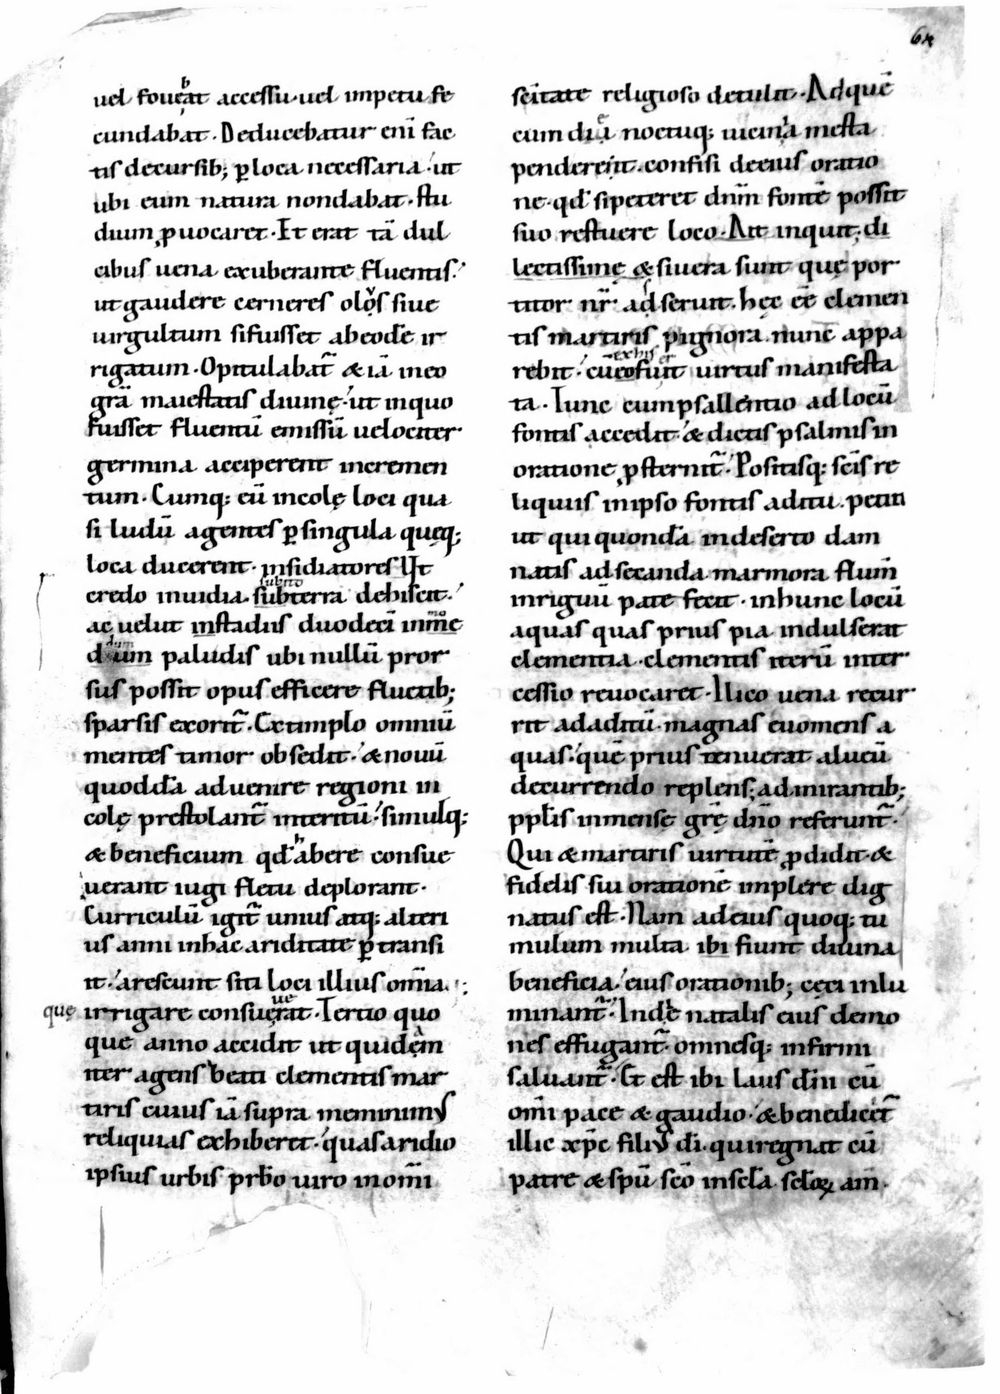 uel foueƀat accessu. uel impetu fe
cundabat. Deducebatur eni͞ fac
tis decursib; ꝑ loca necessaria. ut
ubi eum natura non dabat. stu
dium ꝓuocaret. It erat ta͞ dul
cibus uena exuberante fluentis.
ut gaudere cerneres olos siue
uirgultum si fuisset ab eode͞ ir
rigatum. Opitulabat͞ & ia͞ in eo
gra͞ maiestatis diuinę. ut in quo
fuisset fluentu͞ emissu͞ uelociter
germina acciperent incremen
tum. Cumq; cu͞ incolę loci qua
si ludu͞ agentes ꝑ singula queq;
loca ducerent. insidiatores Ut
subito
credo inuidia. sub terra dehiscit.
ac uelut in stadiis duodeci͞ in
paludis ubi nullu͞ pror
sus possit opus efficere fluctib;
sparsis exorit͞. Extimplo omniu͞
mentes timor obsedit. & nouu͞
quodda͞ aduenire regioni in
colę prestolant͞ interitu͞. simulq;
& beneficium qd͞ habere consue
uerant iugi fletu deplorant.
Curriculu͞ igit͞ unius atq; alteri
us anni in hac ariditate ꝑ transi
it. arescunt siti loci illius om͞ia.
quę irrigare consueuerat. Tertio quo
que anno accidit ut quidam
iter agens beati clementis mar
tiris cuius ia͞ supra meminimus
reliquias exhiberet. quas aridio
ipsius urbis pr͞bo uiro in om͞i
sc͞itate religioso detulit. Ad que͞
cum die noctuq; uicina mesta
penderent. confisi de eius oratio
ne. qd͞ si peteret dn͞m fonte͞ possit
suo restuere loco. Ait inquit. di
lectissime & si uera sunt quę por
titor nr͞ adseruit. hęc e͞e elemen
tis martiris pignora. nunc appa
exhis
rebit. cu͞ eo fuerit uirtus manifesta
ta. Tunc cum psallentio ad locu͞
fontis accedit. & dictis psalmis in
oratione ꝓsternit͞. Positisq; sc͞is re
liquiis in ipso fontis aditu. petiit
ut qui quonda͞ in deserto dam
natis ad secanda marmora flum͞
inriguu͞ pate fecit. in hunc locu͞
aquas quas prius pia indulserat
clementia. clementis iteru͞ inter
cessio reuocaret. Ilico uena recur
rit ad aditu͞. magnas euomens a
quas. que͞ prius tenuerat alueu͞
decurrendo replens; admirantib;
ppl͞is inmense gr͞e dn͞o referunt͞.
Qui & martiris uirtute͞ ꝓdidit. &
fidelis sui oratione͞ implere dig
natus est. Nam ad eius quoq; tu
mulum multa ibi fiunt diuina
beneficia. eius orationib; ceci inlu
minant͞. Inde natalis eius demo
nes effugant͞. omnesq; infirmi
saluant͞. Et est ibi laus d͞m cu͞
om͞i pace & gaudio. & benedicet͞
illic xp͞c filius d͞i. qui regnat cu͞
patre & sp͞u sc͞o in sc͞la. sc͞loꝝ am͞.